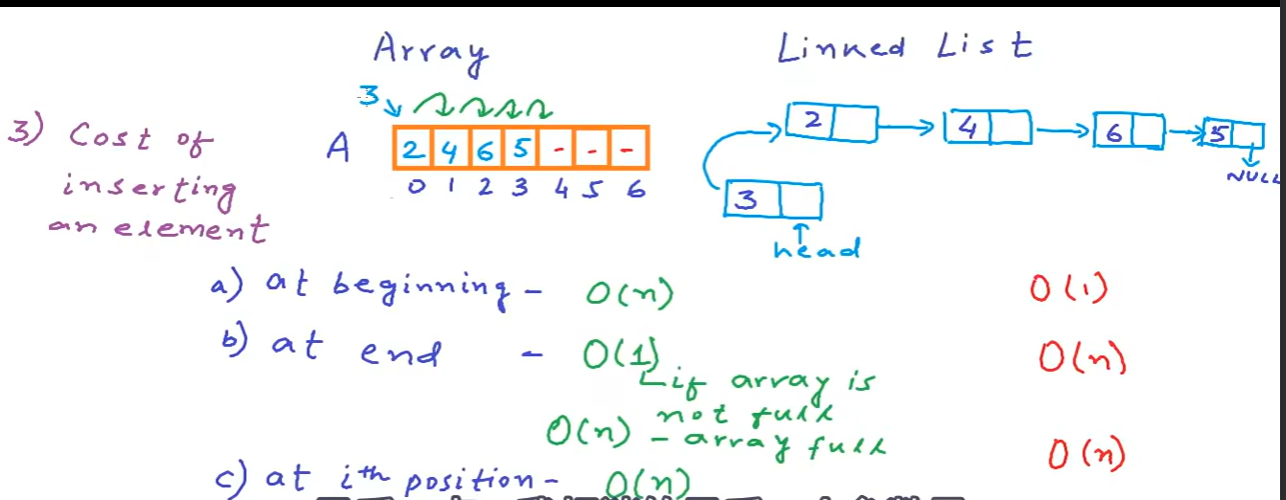 Array
Linked List
3
3) Cost of
inserting
an element
A
2 4 6 5 - - -
0 1 2 3 4 5 6
2
4
6
5
NULL
3
head
a) at beginning - O(n)
O(1)
b) at end - O(1)
O(n)
if array is
not full
O(n) - array full
O(n)
c) at ith position - O(n)